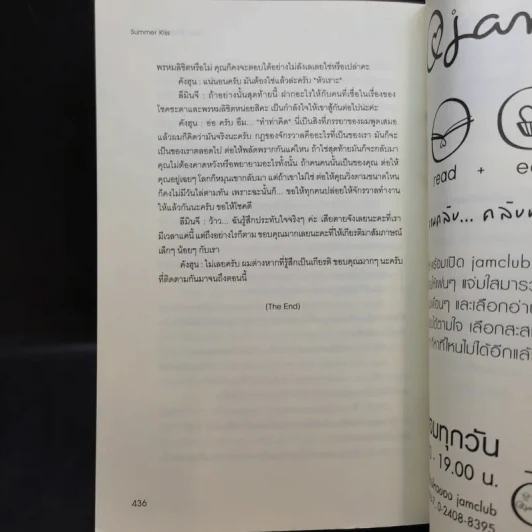 Summer Kiss
พรหมลิขิตหรือไม่ คุณก็คงจะตอบได้อย่างไม่ลังเลเลยใช่หรือเปล่าคะ
คังฮุน : แน่นอนครับ มันต้องใช่แล้วล่ะครับ *หัวเราะ*
ลีมินจี : ถ้าอย่างนั้นสุดท้ายนี้ ฝากอะไรให้กับคนที่เชื่อในเรื่องของ
โชคชะตาและพรหมลิขิตหน่อยสิคะ เป็นกำลังใจให้เขาสู้กันต่อไปน่ะค่ะ
คังฮุน : อ๋อ ครับ อืม... “ทำท่าคิด” นี่เป็นสิ่งที่ภรรยาของผมพูดเสมอ
แล้วผมก็คิดว่ามันจริงนะครับ กฎของจักรวาลคืออะไรที่เป็นของเรา มันก็จะ
เป็นของเราตลอดไป ต่อให้พลัดพรากกันแค่ไหน ถ้าใช่สุดท้ายมันก็จะกลับมา
คุณไม่ต้องคาดหวังหรือพยายามอะไรทั้งนั้น ถ้าคนคนนั้นเป็นของคุณ ต่อให้
คุณอยู่เฉยๆ โลกก็หมุนเขากลับมา แต่ถ้าเขาไม่ใช่ ต่อให้คุณวิ่งตามขนาดไหน
ก็คงไม่มีวันไล่ตามทัน เพราะฉะนั้นก็... ขอให้ทุกคนปล่อยให้จักรวาลทำงาน
ให้แล้วกันนะครับ ขอให้โชคดี
ลีมินจี : ว้าว... ฉันรู้สึกประทับใจจริงๆ ค่ะ เสียดายจังเลยนะคะที่เรา
มีเวลาแค่นี้ แต่ถึงอย่างไรก็ตาม ขอบคุณมากเลยนะคะที่ให้เกียรติมาสัมภาษณ์
เล็กๆ น้อยๆ กับเรา
คังฮุน : ไม่เลยครับ ผมต่างหากที่รู้สึกเป็นเกียรติ ขอบคุณมากๆ นะครับ
ที่ติดตามกันมาจนถึงตอนนี้
(The End)
436
@jam
read + ea
คลับ... คลับ
พร้อมเปิด jamclub
ให้แฟนๆ แจ่มใสมาร
เพื่อนๆ และเลือกอ่าน
ได้ตามใจ เลือกสะส
หาที่ไหนไม่ได้อีกแล้
ทุกวัน
- 19.00 น.
jamclub
0-2408-8395